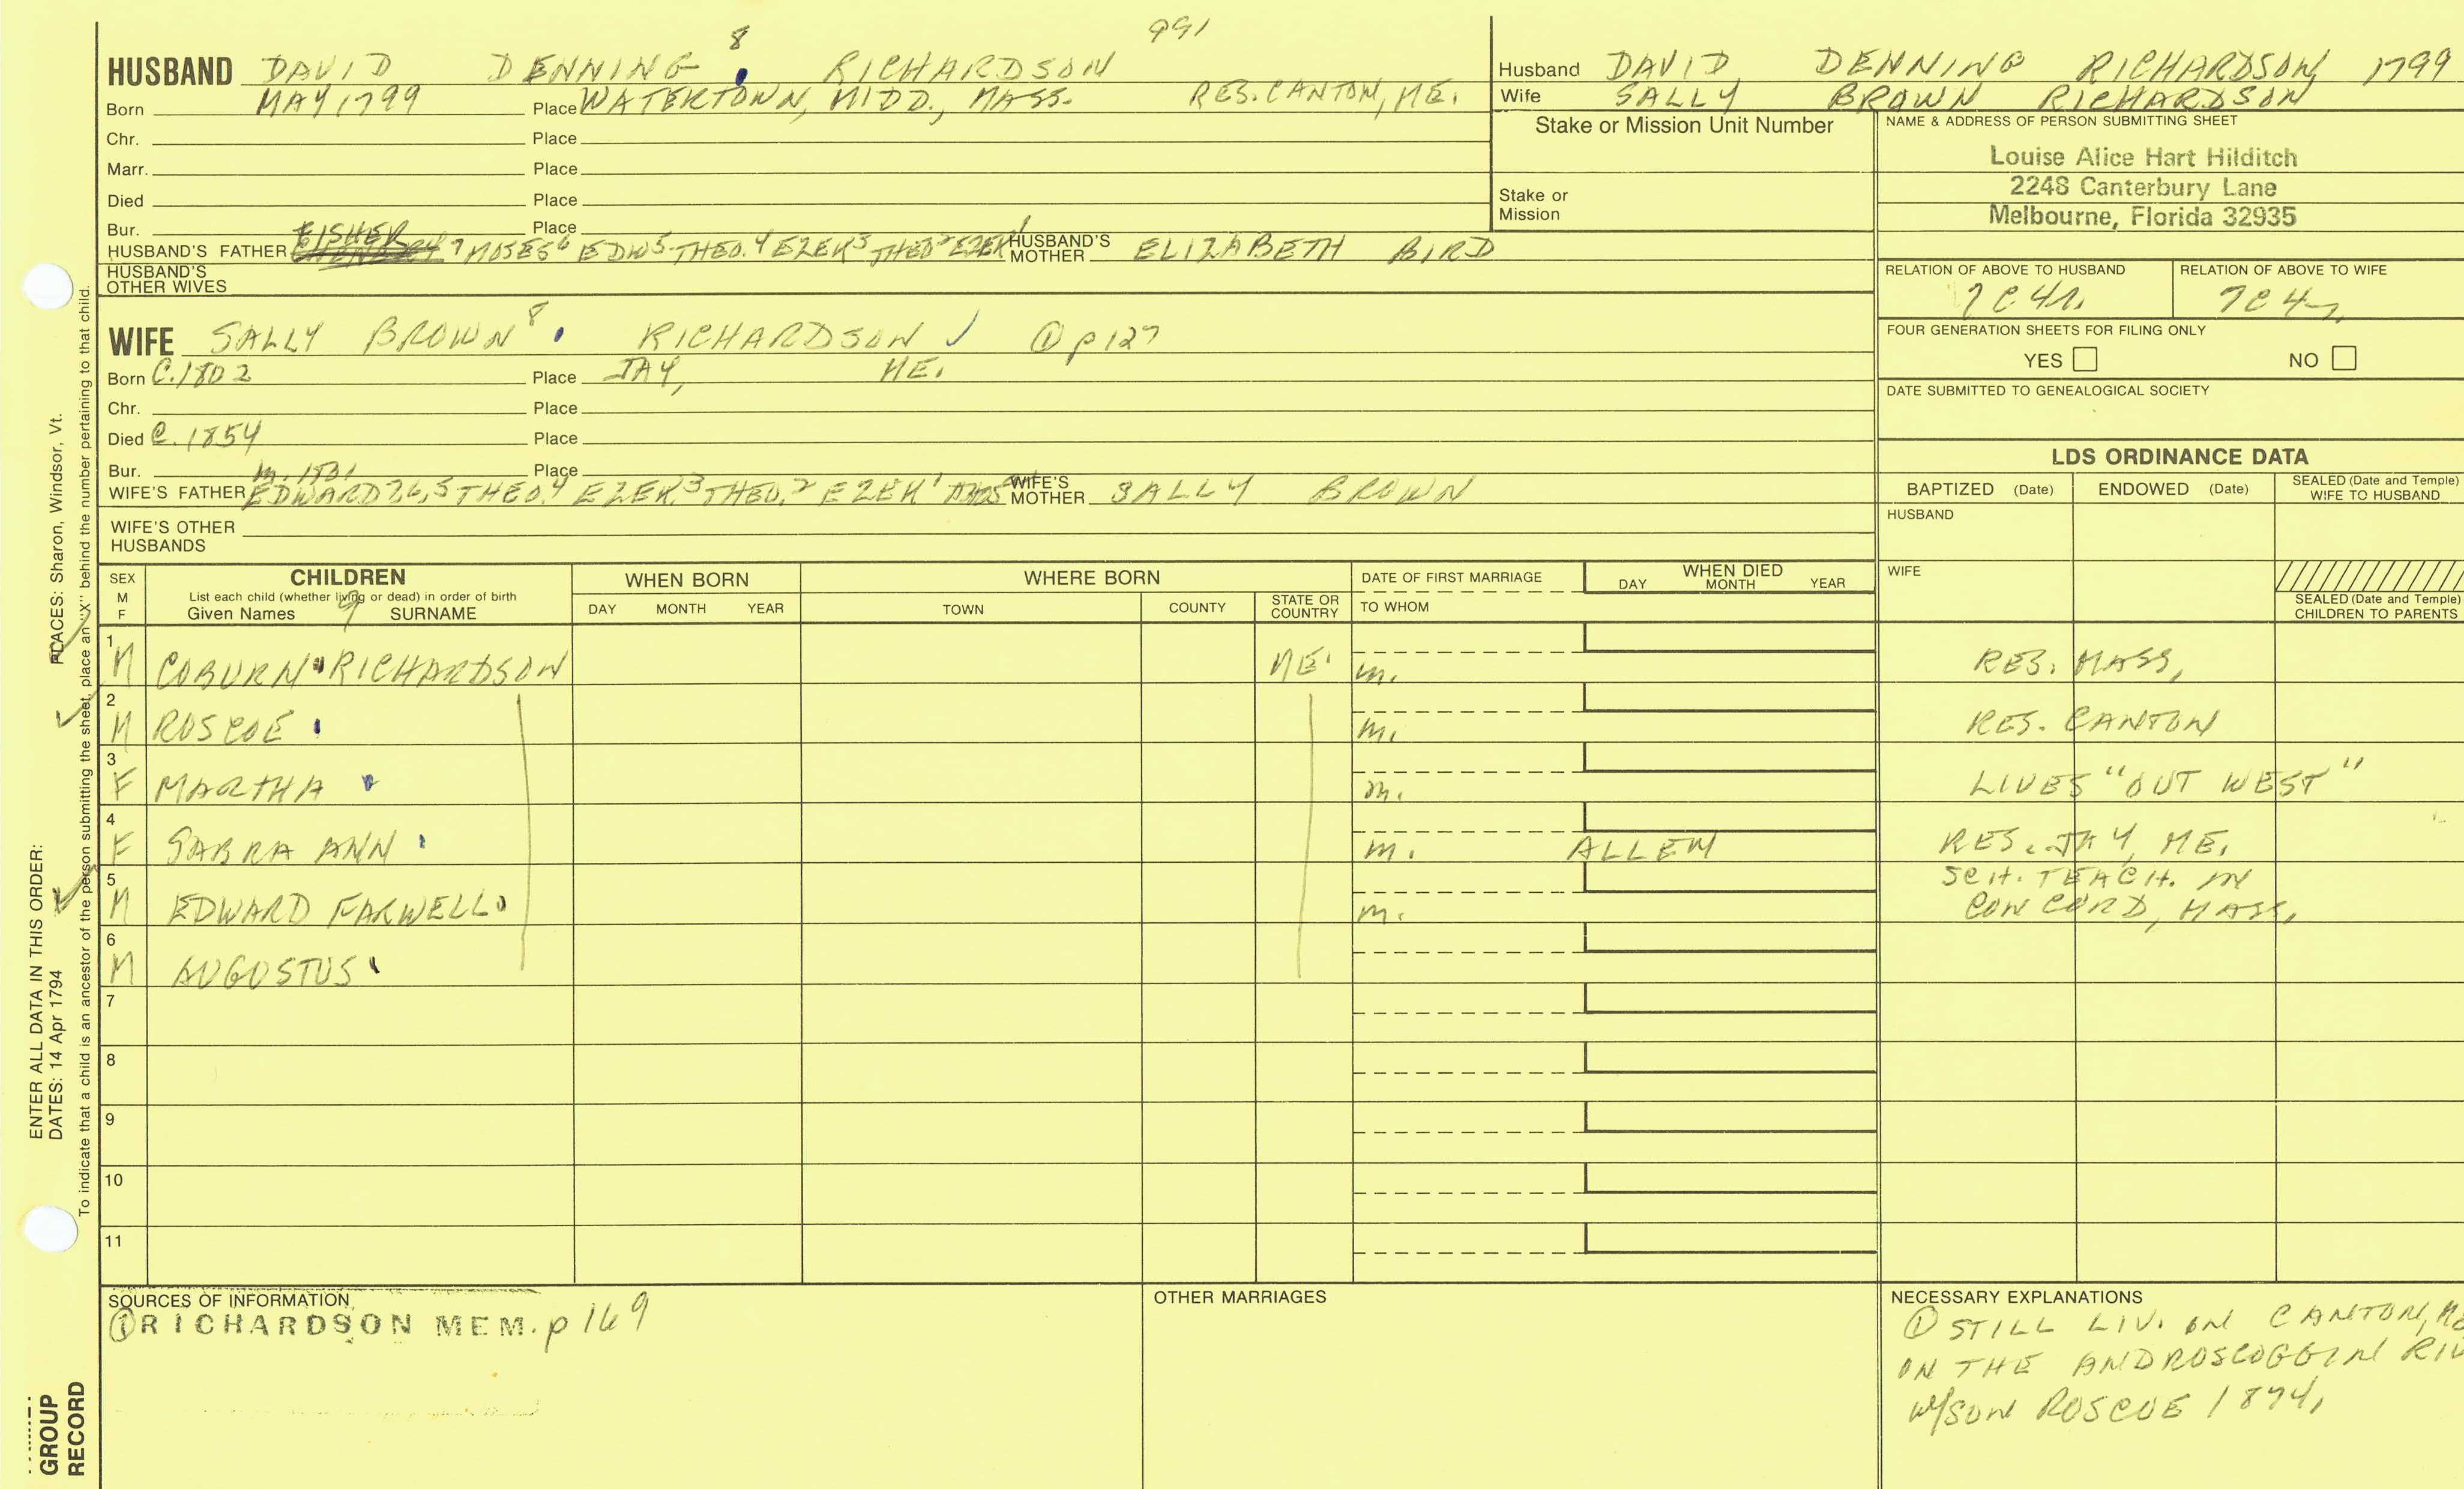 991
8
HUSBAND DAVID DENNING RICHARDSON
Born MAY 1799 Place WATERTOWN, MIDD., MASS. RES. CANTON, ME.
Chr. Place
Marr. Place
Died Place
Bur. Place
FISHER
HUSBAND'S FATHER 7 MOSES6 EDW5 THEO.4 EZEK3 THEO2 EZEK1 HUSBAND'S MOTHER ELIZABETH BIRD
HUSBAND'S OTHER WIVES
WIFE SALLY BROWN 8 RICHARDSON ① p127
Born C.1802 Place JAY, ME.
Chr. Place
Died C. 1854 Place
Bur. Place
WIFE'S FATHER EDWARD 7,6,5 THEO,4 EZEK,3 THEO,2 EZEK1 WIFE'S MOTHER SALLY BROWN
WIFE'S OTHER HUSBANDS
Husband DAVID DENNING RICHARDSON 1799
Wife SALLY BROWN RICHARDSON
Stake or Mission Unit Number
Stake or Mission
NAME & ADDRESS OF PERSON SUBMITTING SHEET
Louise Alice Hart Hilditch
2248 Canterbury Lane
Melbourne, Florida 32935
RELATION OF ABOVE TO HUSBAND RELATION OF ABOVE TO WIFE
7C4r. 7C4r.
FOUR GENERATION SHEETS FOR FILING ONLY
YES NO
DATE SUBMITTED TO GENEALOGICAL SOCIETY
LDS ORDINANCE DATA
BAPTIZED (Date) ENDOWED (Date) SEALED (Date and Temple) WIFE TO HUSBAND
HUSBAND
WIFE
SEALED (Date and Temple) CHILDREN TO PARENTS
SEX M F
CHILDREN
List each child (whether living or dead) in order of birth
Given Names 9 SURNAME
WHEN BORN
DAY MONTH YEAR
WHERE BORN
TOWN COUNTY STATE OR COUNTRY
DATE OF FIRST MARRIAGE
TO WHOM
WHEN DIED
DAY MONTH YEAR
1 M COBURN RICHARDSON ME. m. RES. MASS,
2 M ROSCOE m. RES. CANTON
3 F MARTHA m. LIVES "OUT WEST"
4 F SABRA ANN m. ALLEN RES. JAY, ME.
5 M EDWARD FARWELL m. SCH. TEACH. IN
CONCORD, MASS,
6 M AUGUSTUS
7
8
9
10
11
SOURCES OF INFORMATION
① RICHARDSON MEM. p 169
OTHER MARRIAGES
NECESSARY EXPLANATIONS
① STILL LIV. IN CANTON,
ON THE ANDROSCOGGIN RIV
w/SON ROSCOE 1874,
ENTER ALL DATA IN THIS ORDER:
DATES: 14 Apr 1794 PLACES: Sharon, Windsor, Vt.
To indicate that a child is an ancestor of the person submitting the sheet, place an "X" behind the number pertaining to that child.
GROUP
RECORD